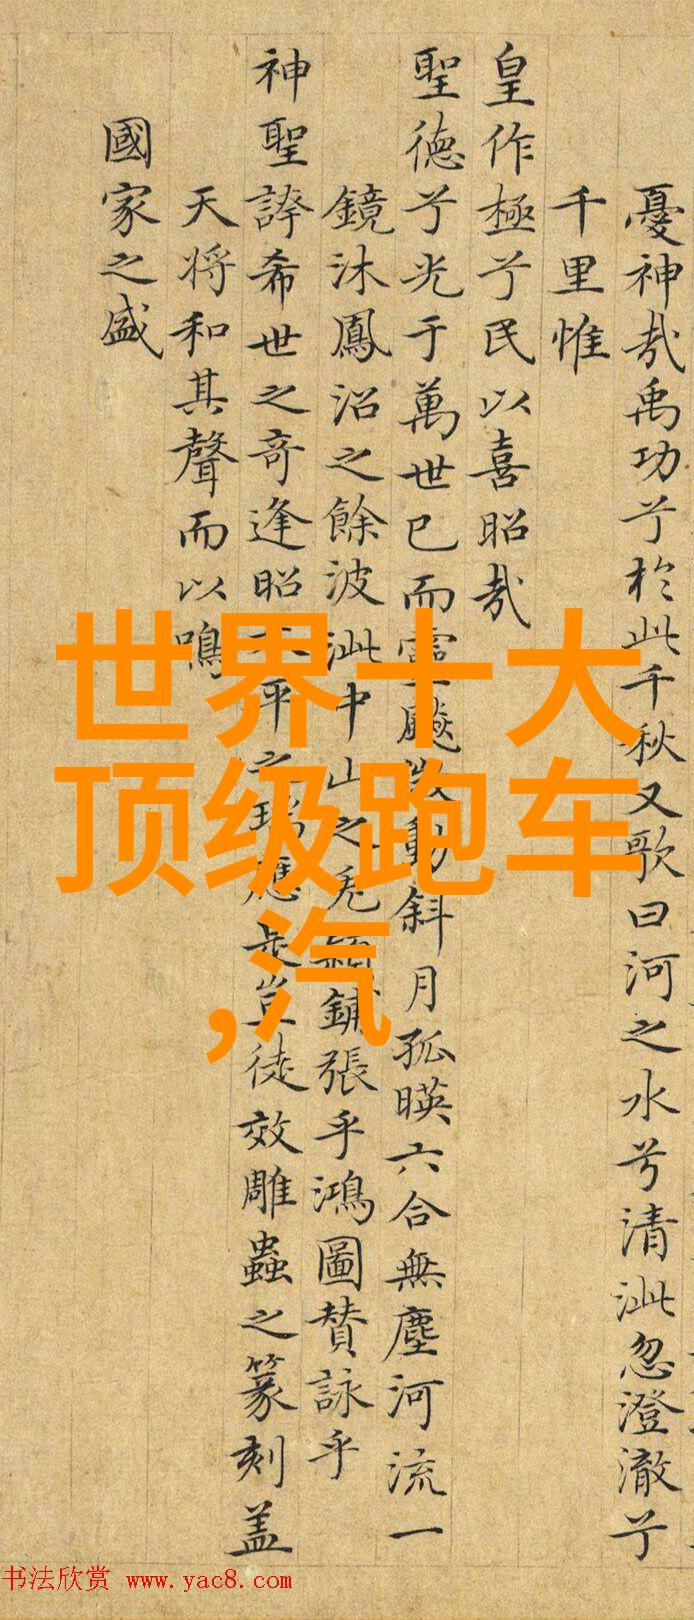 憂神哉禹功兮於此千秋又歌曰河之水兮清泚忽澄澈兮
千里惟
皇作極兮民以喜昭哉
聖德兮光于萬世已而靈飈迭動斜月孤暎六合無塵河流一
鏡沐鳳沼之餘波泚中山之兎穎鋪張乎鴻圖贊詠乎
神聖誇希世之奇逢昭太平之瑞應是豈徒效雕蟲之篆刻盖
天将和其聲而以鳴
國家之盛
世界十大
顶级跑车
,汽
书法欣赏 www.yac8.com